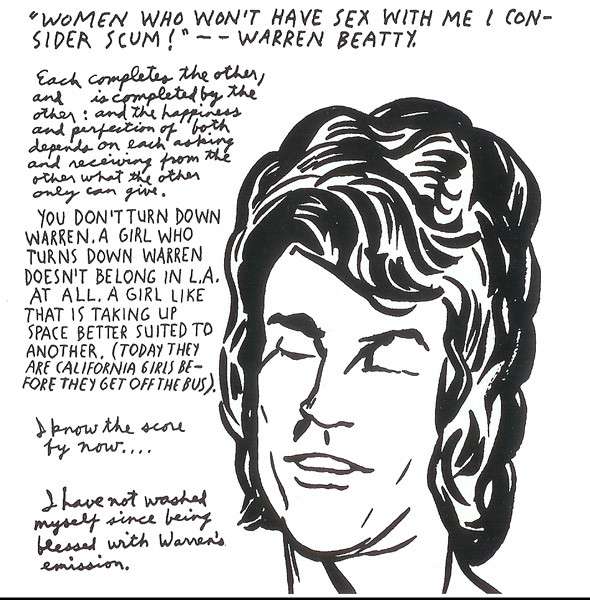 "WOMEN WHO WON'T HAVE SEX WITH ME I CON-
SIDER SCUM!" -- WARREN BEATTY.
Each completes the other,
and is completed by the
other: and the happiness
and perfection of both
depends on each asking
and receiving from the
other what the other
only can give.
YOU DON'T TURN DOWN
WARREN. A GIRL WHO
TURNS DOWN WARREN
DOESN'T BELONG IN L.A.
AT ALL. A GIRL LIKE
THAT IS TAKING UP
SPACE BETTER SUITED TO
ANOTHER. (TODAY THEY
ARE CALIFORNIA GIRLS BE-
FORE THEY GET OFF THE BUS).
I know the score
by now....
I have not washed
myself since being
blessed with Warren's
emission.